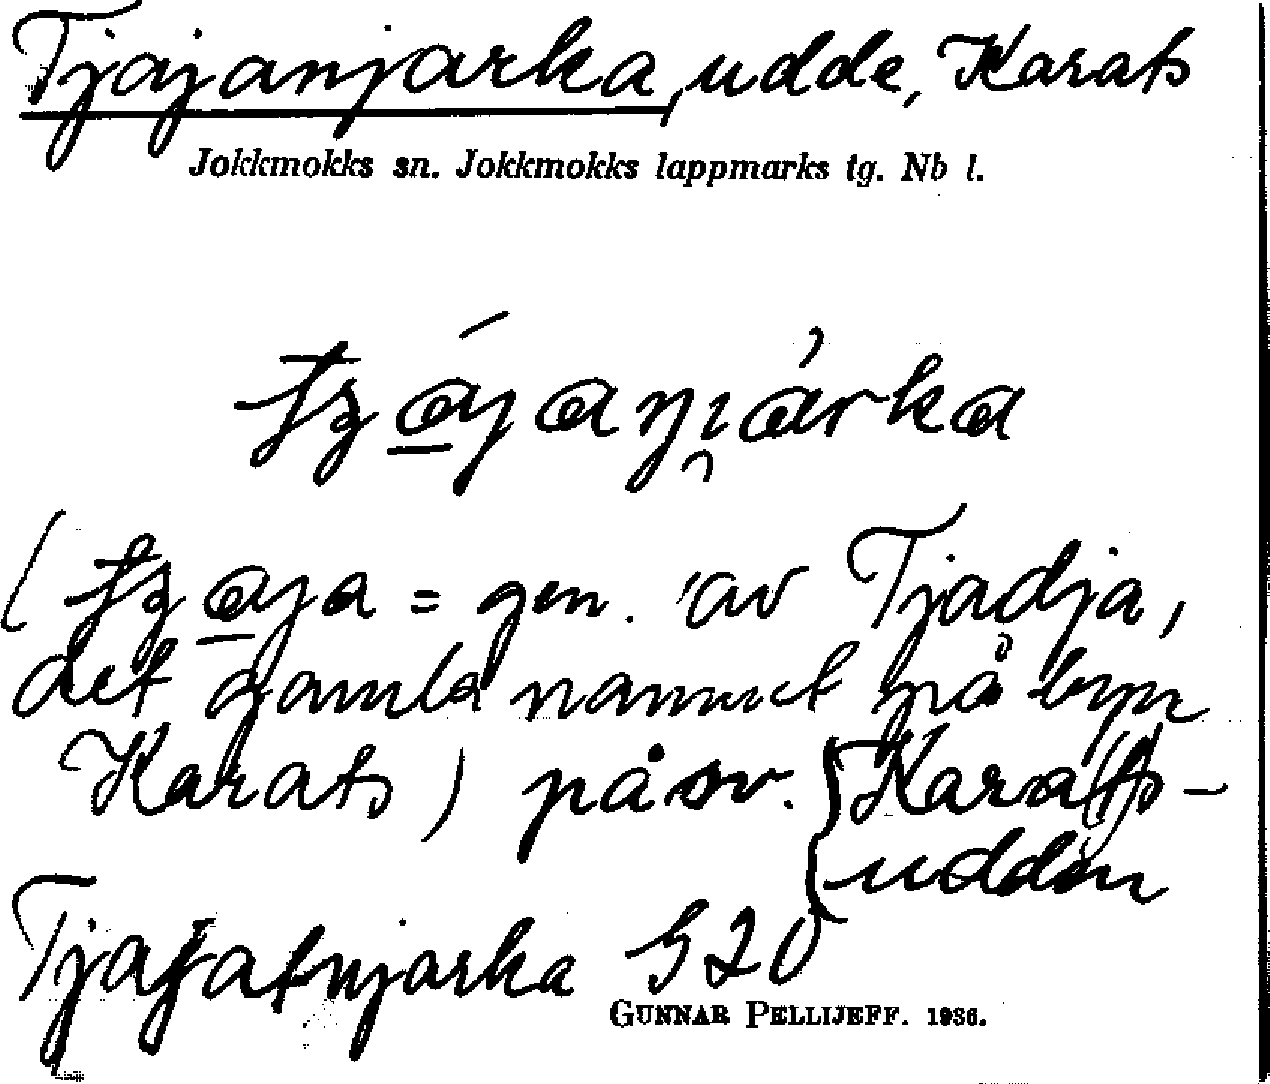 Tjajanjarka, udde, Karats
Jokkmokks sn. Jokkmokks lappmarks tg. Nb l.
tʒája ŋi̯árka
(tʒaja = gen. av Tjadja,
det gamla namnet på byn
Karats) på sv. {Karats-
udden
Tjajatnjarka G20
GUNNAR PELLIJEFF. 1936.